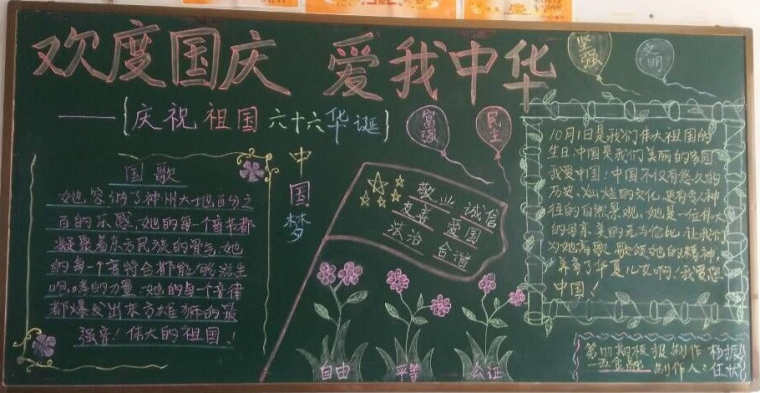 欢度国庆 爱我中华
——{庆祝祖国六十六华诞}
坚强
文明
富强
民主
中国梦
国歌
她容纳了神州大地百分之
百的乐感,她的每一个音节都
凝聚着东方民族的骨气,她
的每一个音符合都能
的力量,她的每一个音律
都爆发出东方雄狮的最
强音!伟大的祖国!
敬业 诚信
友善 爱国
法治 合谐
自由 平等 公证
10月1日是我们伟大祖国的
生日,中国是我们美丽的家园
我爱中国:中国不仅有悠久的
历史,灿烂的文化,更有令人神
往的自然景观,她是一位伟大
的母亲,美的无与伦比,让我们
为她高歌,歌颂她的精神
养育了华夏儿女啊,我爱您
中国!
第四期板报制作
制作人: